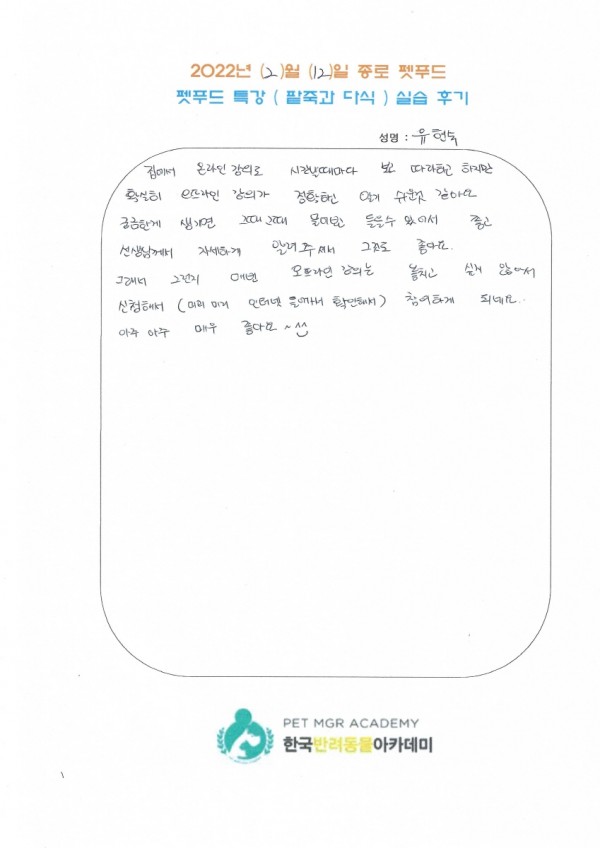 2022년 (2)월 (12)일 종로 펫푸드
펫푸드 특강 ( 팥죽과 다식 ) 실습 후기
성명 : 유현숙
집에서 온라인 강의로 시간날때마다 보고 따라하고 하지만
확실히 오프라인 강의가 정확하고 알기 쉬운것 같아요
궁금한게 생기면 그때그때 물어보고 들을수 있어서 좋고
선생님께서 자세하게 알려주셔서 그것도 좋아요.
그래서 그런지 매번 오프라인 강의는 놓치고 싶지 않아서
신청해서 (미리 미리 인터넷 들어가서 확인해서) 참여하게 되네요.
아주 아주 매우 좋아요~^^
PET MGR ACADEMY
한국반려동물아카데미